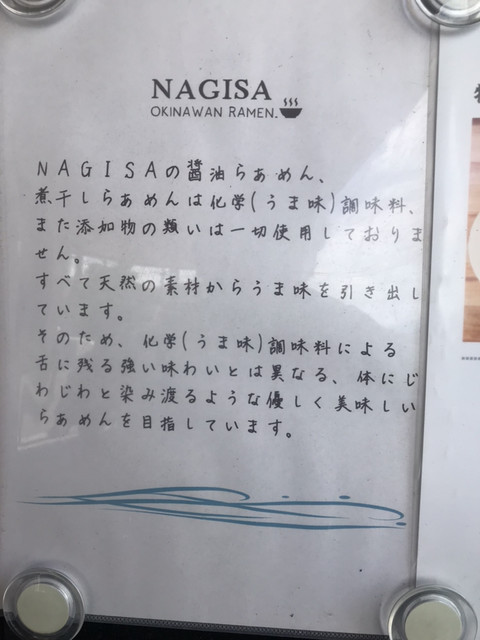 NAGISA
OKINAWAN RAMEN.
NAGISAの醤油らぁめん、
煮干しらぁめんは化学(うま味)調味料、
また添加物の類いは一切使用しておりま
せん。
すべて天然の素材からうま味を引き出し
ています。
そのため、化学(うま味)調味料による
舌に残る強い味わいとは異なる、体にじ
わじわと染み渡るような優しく美味しい
らぁめんを目指しています。